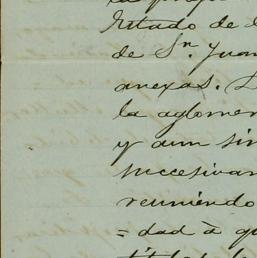 Estado de
de Sn. Juan
anexas.
la aglomer
y aun sin
succesivam
reuniendo
= dad à qu